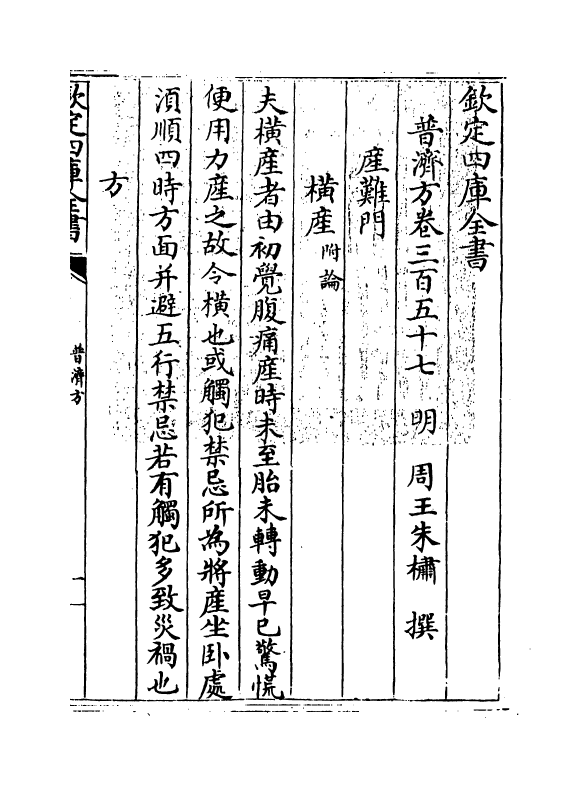 欽定四庫全書
普濟方卷三百五十七　明　周王朱橚　撰
産難門
橫産附論
夫橫産者由初覺腹痛産時未至胎未轉動早已驚慌
便用力産之故令橫也或觸犯禁忌所為將産坐卧處
湏順四時方面并避五行禁忌若有觸犯多致災禍也
方
欽定四庫全書
普濟方
一